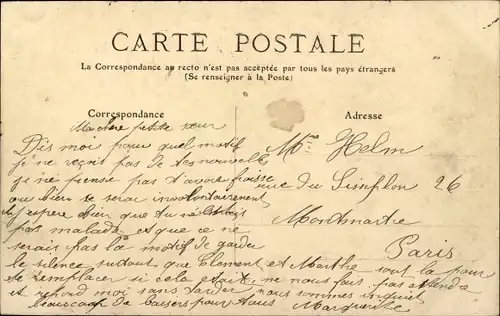 CARTE POSTALE
La Correspondance au recto n'est pas acceptée par tous les pays étrangers
(Se renseigner à la Poste)
Correspondance
Adresse
Ma chere petite sœur
Dis moi pour quel motif
je ne reçoit pas de tes nouvelle
je ne pense pas t'avoir froissé
ou bien se serai involontairement
j'espere bien que tu n'est
pas malade et que ce ne
serais pas la motif de garder
le silence surtout que Clement et Marthe sont la pour
te remplacer si cela etait, ne nous fais pas attendre
et repond moi sans tarder nous sommes inquiet
beaucoup de baisers pour vous Marguerite
Helm
rue du Simplon 26
Montmartre
Paris